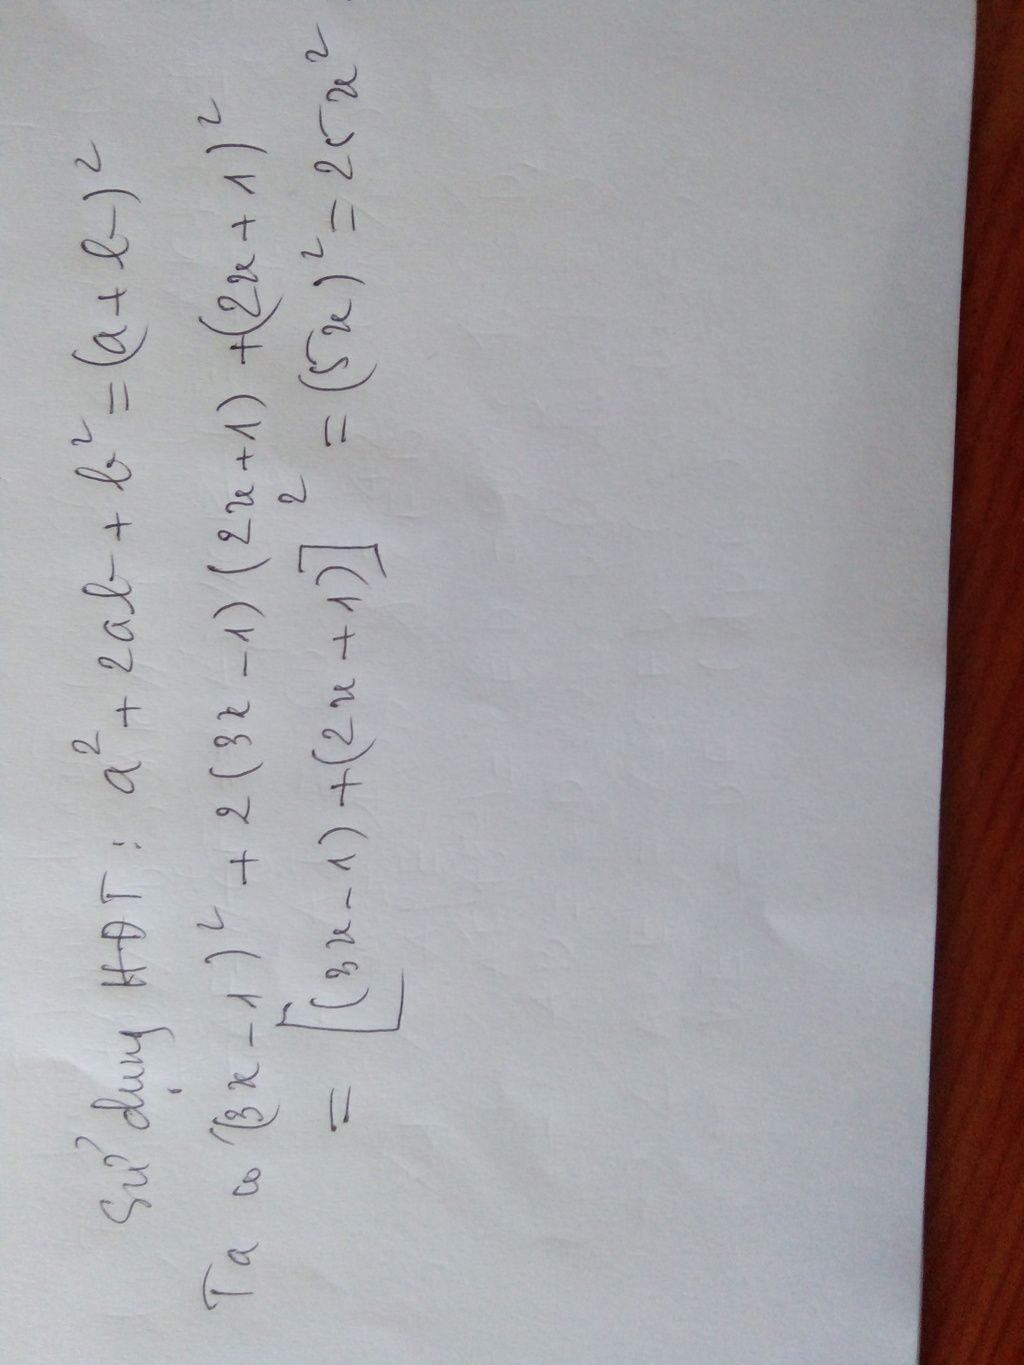 Sử dụng HĐT : a² + 2ab + b² = (a + b)²
Ta có (3x - 1)² + 2 (3x - 1) (2x + 1) + (2x + 1)²
= [(3x - 1) + (2x + 1)]² = (5x)² = 25x²